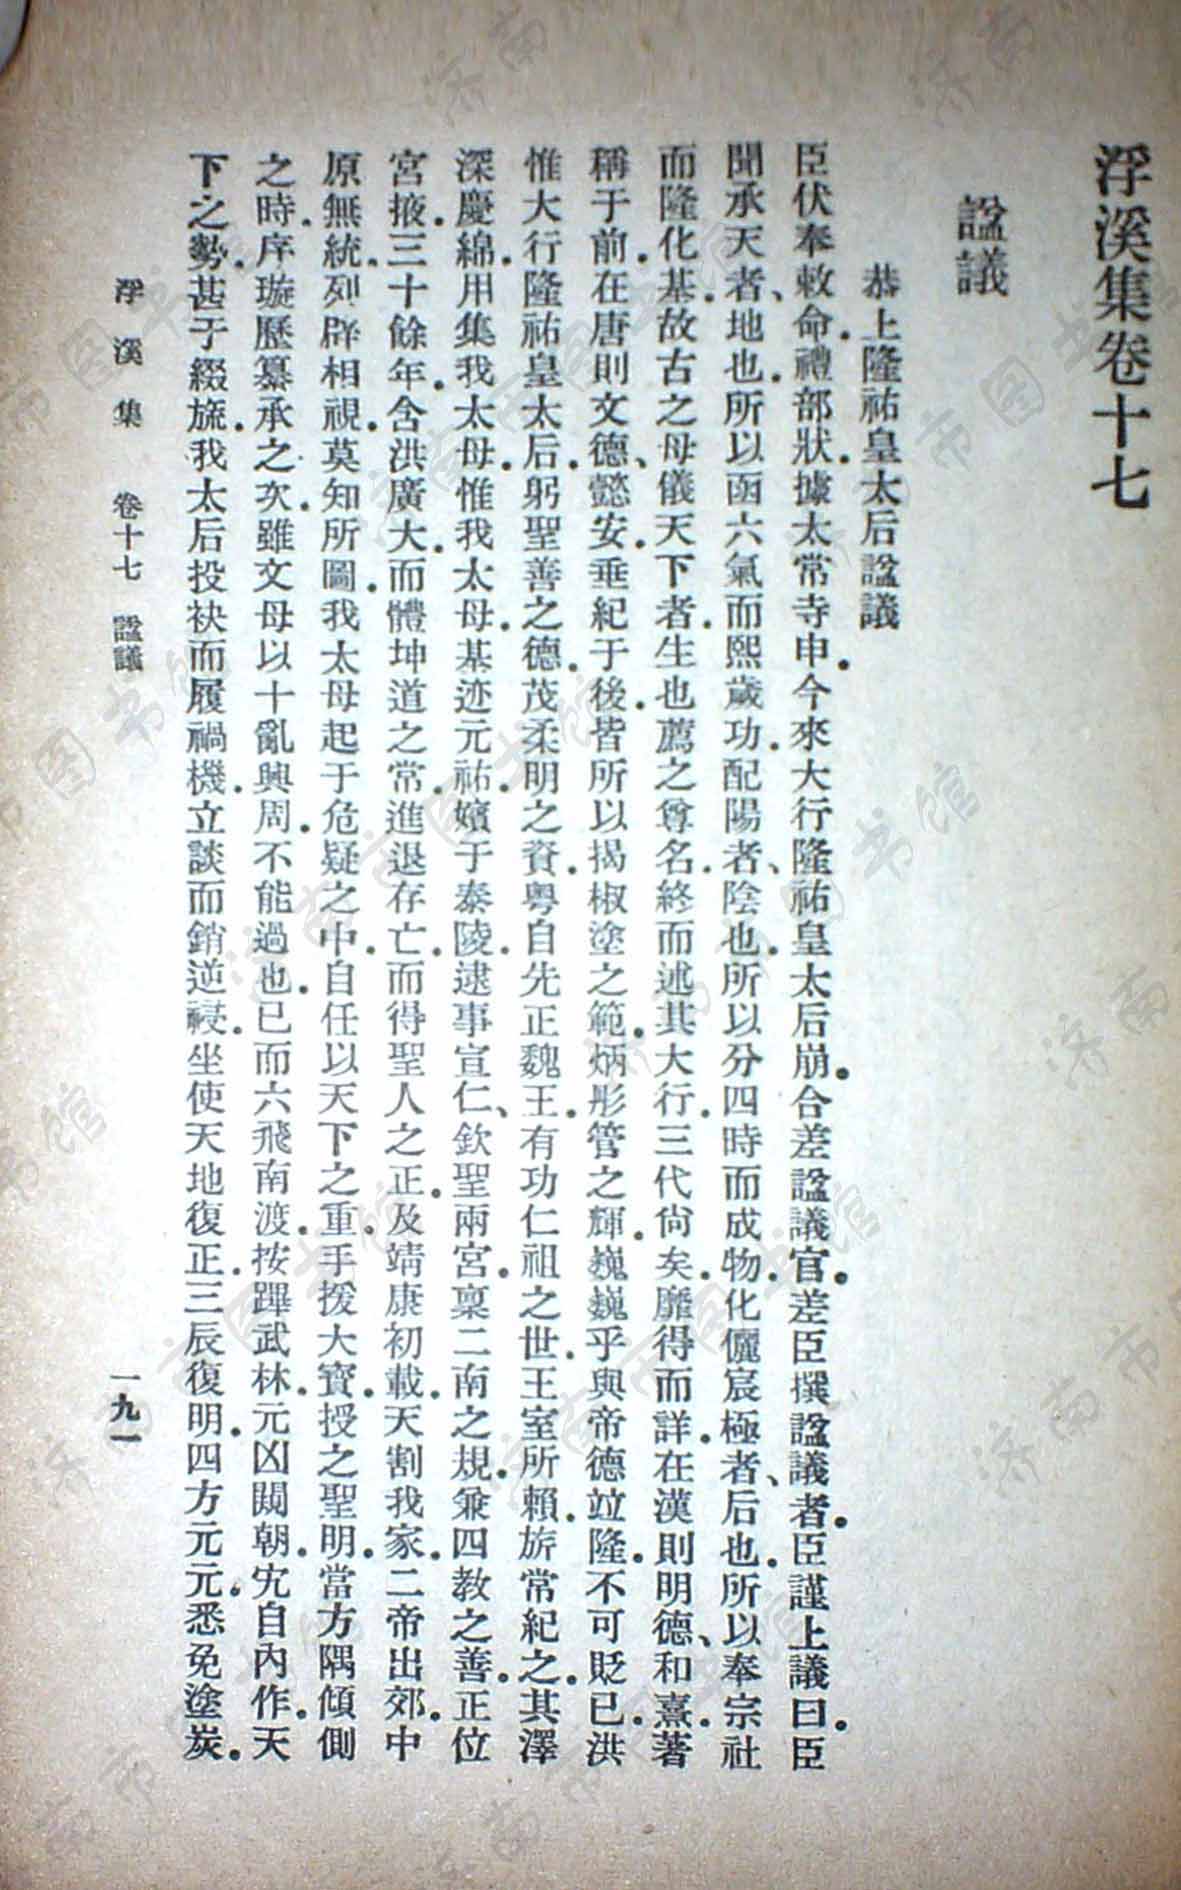 浮溪集卷十七
諡議
恭上隆祐皇太后諡議
臣伏奉敕命.禮部狀.據太常寺申.今來大行隆祐皇太后崩.合差諡議官.差臣撰諡議者.臣謹上議曰.臣
聞承天者、地也.所以函六氣而熙歲功.配陽者、陰也.所以分四時而成物化.儷宸極者、后也.所以奉宗社
而隆化基.故古之母儀天下者.生也薦之尊名.終而述其大行.三代尙矣.靡得而詳.在漢則明德、和熹.著
稱于前.在唐則文德、懿安.垂紀于後.皆所以揭椒塗之範.炳彤管之輝.巍巍乎與帝德竝隆.不可貶已.洪
惟大行隆祐皇太后.躬聖善之德.茂柔明之資.粵自先正魏王.有功仁祖之世.王室所賴.旂常紀之.其澤
深慶綿.用集我太母.惟我太母.基迹元祐.嬪于泰陵.逮事宣仁、欽聖兩宮.稟二南之規.兼四教之善.正位
宮掖.三十餘年.含洪廣大.而體坤道之常.進退存亡.而得聖人之正.及靖康初載.天割我家.二帝出郊.中
原無統.列辟相視.莫知所圖.我太母起于危疑之中.自任以天下之重.手援大寶.授之聖明.當方隅傾側
之時.序璇歷纂承之次.雖文母以十亂興周.不能過也.已而六飛南渡.按蹕武林.元凶闚朝.宄自內作.天
下之勢.甚于綴旒.我太后投袂而履禍機.立談而銷逆祲.坐使天地復正.三辰復明.四方元元.悉免塗炭.
浮溪集 卷十七 諡議
一九一
济南市图书馆